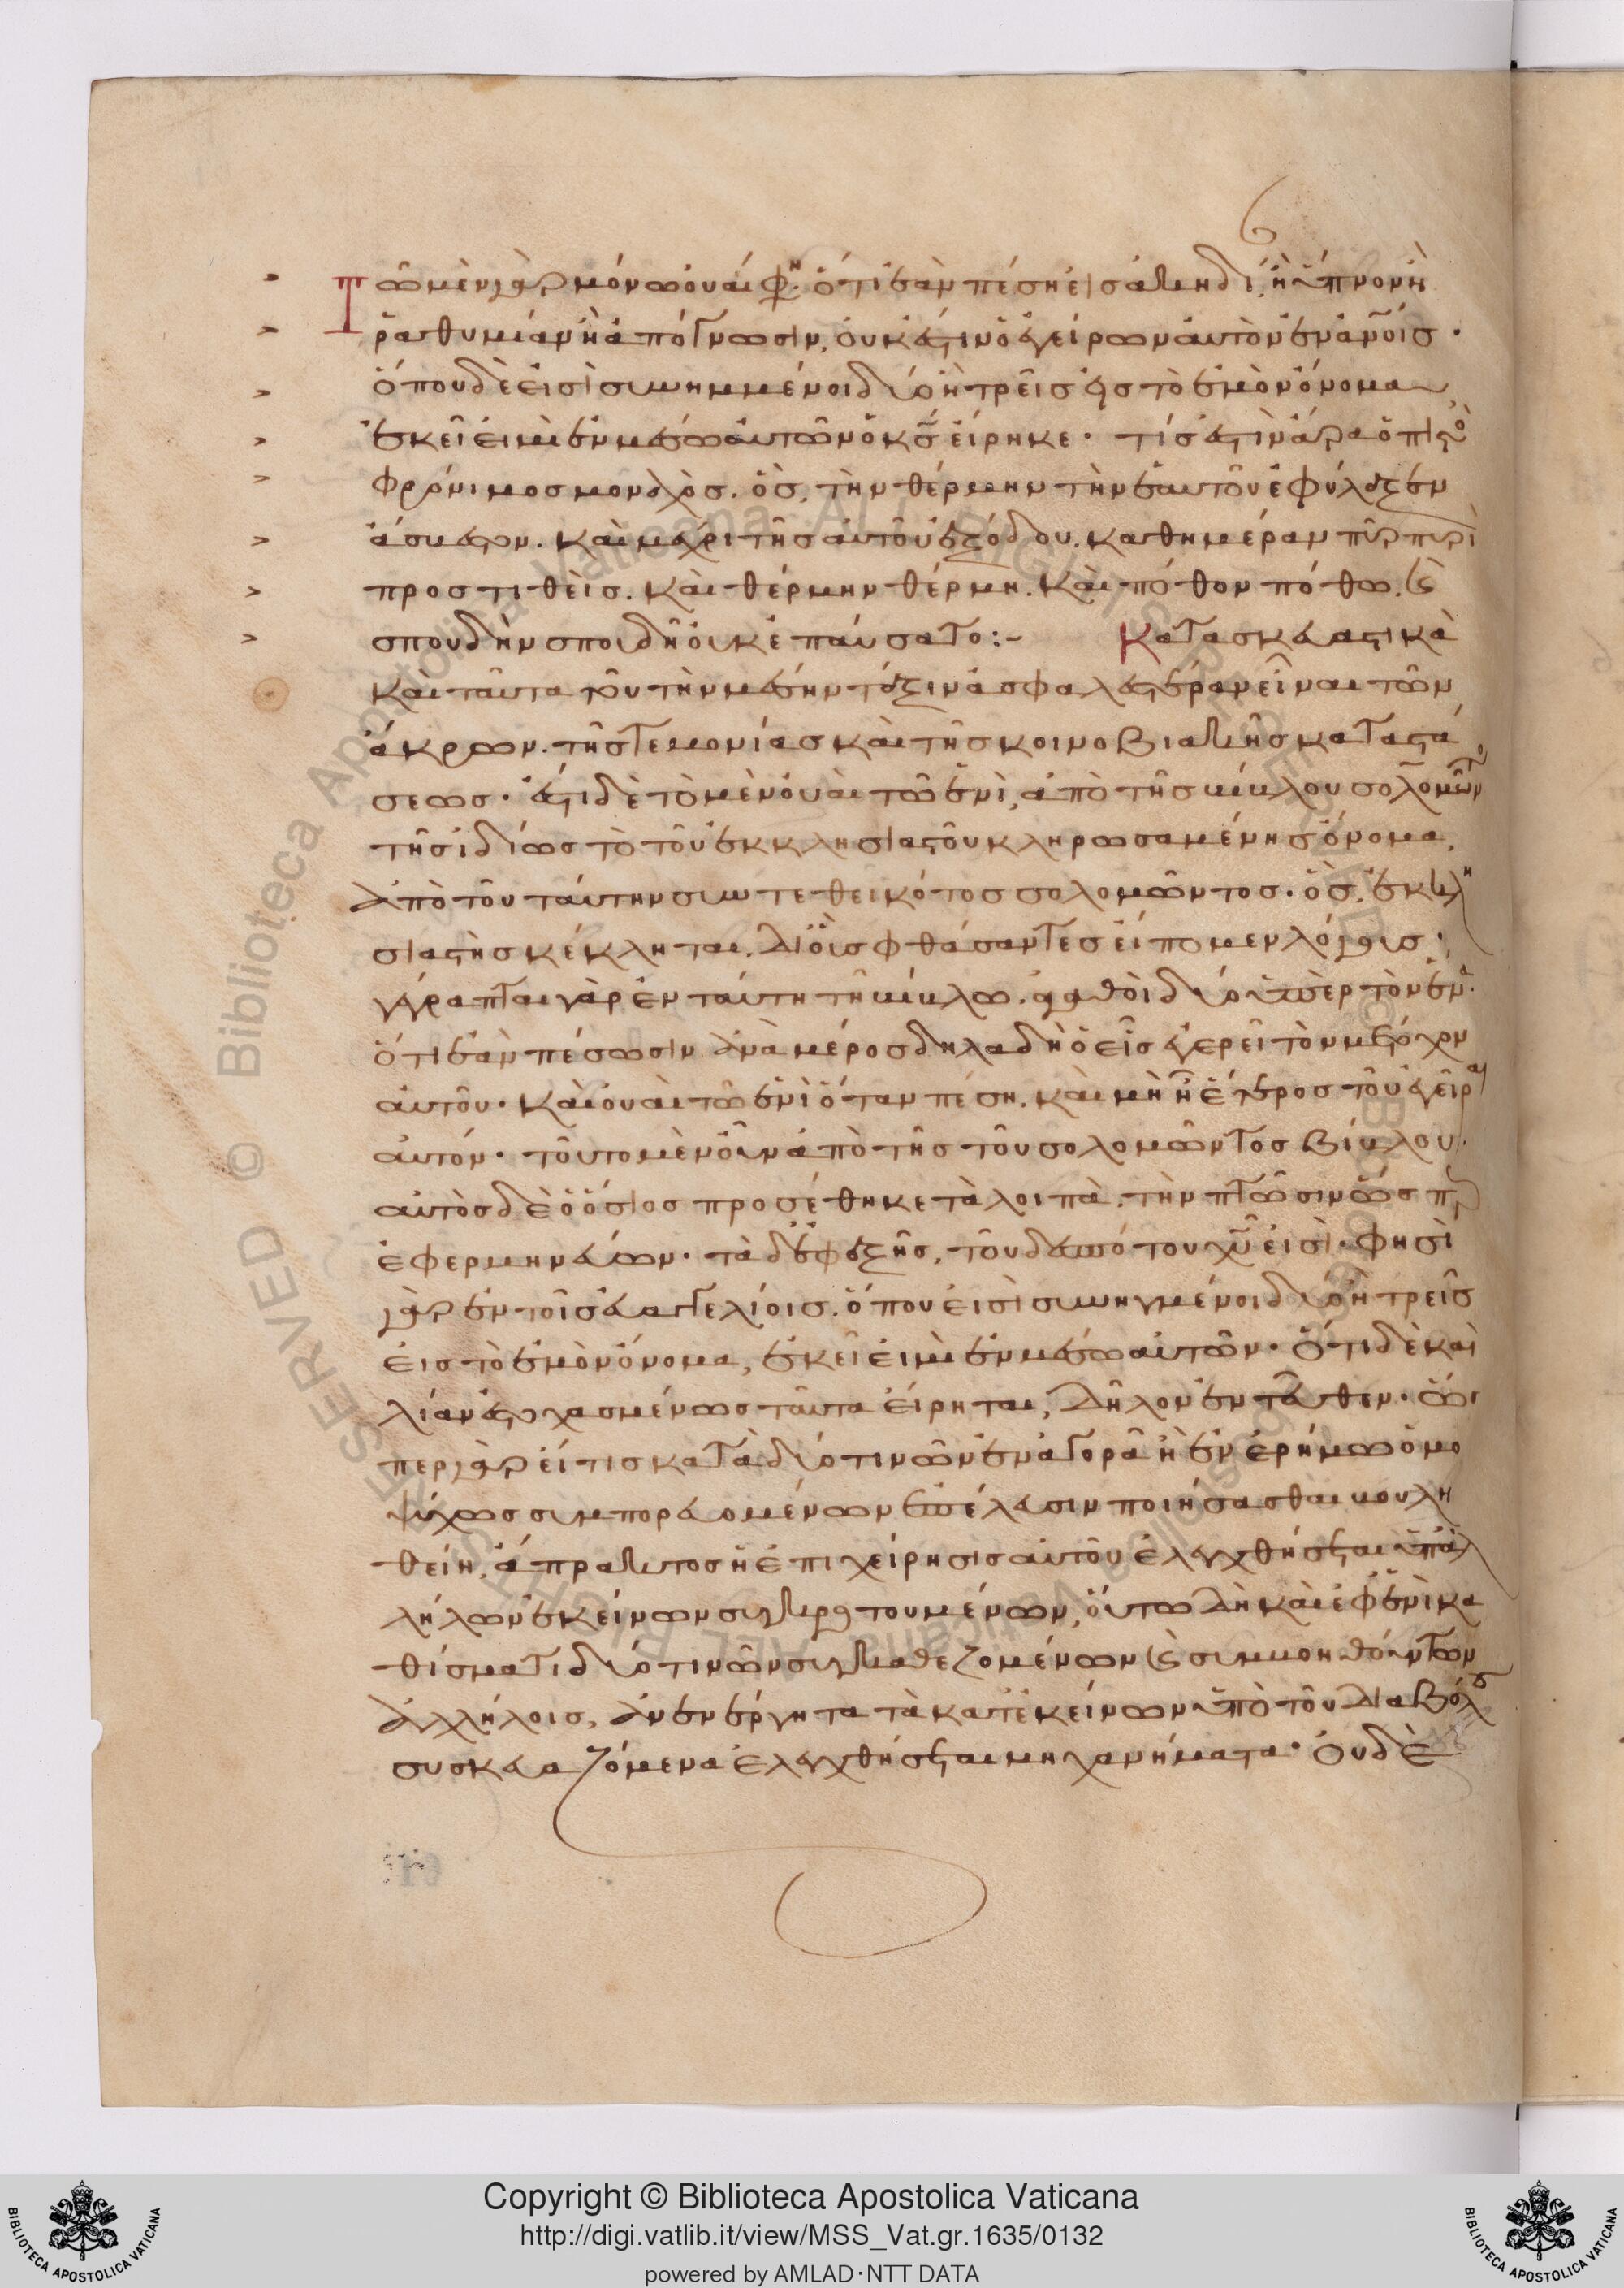 Τῶ μὲν γὰρ μόνω οὐαί φη· ὅτι ἐὰν πέση εἰς ἀκηδί, ἢ ὕπνον ἢ
ῥαθυμίαν ἢ ἀπόγνωσιν, οὐκ ἔστιν ὁ ἐγείρων αὐτὸν ἐν ἀνοις·
ὅπου δέ εἰσι συνημμένοι δύο ἢ τρεῖς εἰς τὸ ἐμὸν ὄνομα,
ἐκεῖ εἰμὶ ἐν μέσω αὐτῶν ὁ κς εἴρηκε· τίς ἐστὶν ἄρα ὁ πιστὸ
φρόνιμος μοναχός. ὃς, τὴν θέρμην τὴν ἑαυτοῦ ἐφύλαξεν
ἄσβεστον. καὶ μέχρι τῆς αὐτοῦ ἐξόδου. καθημέραν πῦρ πυρὶ
προστιθείς. καὶ θέρμην θέρμη. καὶ πόθον πόθω. καὶ
σπουδὴν σπουδῆ οὐκ ἐπαύσατο:- Κατασκευαστικὰ
καὶ ταῦτα τοῦ τὴν μέσην τάξιν ἀσφαλεστέραν εἶναι τῶν
ἄκρων. τῆς γεμονίας καὶ τῆς κοινοβιακῆς καταστά
σεως· ἔστι δὲ τὸ μὲν οὐαὶ τῶ ἑνὶ, ἀπὸ τῆς βίβλου σολομῶντο
τῆς ἰδίως τὸ τοῦ ἐκκλησιαστοῦ κληρωσαμένης ὄνομα,
ἀπὸ τοῦ ταύτην συντεθεικότος σολομῶντος· ὃς, ἐκκλη
σιαστὴς κέκληται. δι' οἷς φθάσαντες εἴπομεν λόγοις·
γέγραπται γὰρ ἐν ταύτη τῆ βίβλω. ἀγαθοὶ δύο ὑπὲρ τὸν ἕνα·
ὅτι ἐὰν πέσωσιν ἀνὰ μέρος δηλαδὴ ὁ εἷς ἐγερεῖ τὸν μέτοχον
αὐτοῦ· καὶ οὐαὶ τῶ ἑνὶ ὅταν πέση. καὶ μὴ ἦ ἕτερος τοῦ ἐγεῖραι
αὐτόν· τοῦτο μὲν οὖν ἀπὸ τῆς τοῦ σολομῶντος βίβλου·
αὐτὸς δὲ ὁ ὅσιος προσέθηκε τὰ λοιπὰ. τὴν πτῶσιν ὥσπερ
ἐφερμηνεύων· τὰ δ' ἐφεξῆς, τοῦ δεσπότου χῦ εἰσὶ· φησὶ
γὰρ ἐν τοῖς εὐαγγελίοις. ὅπου εἰσὶ συνηγμένοι δύο ἢ τρεῖς
εἰς τὸ ἐμὸν ὄνομα, ἐκεῖ εἰμὶ ἐν μέσω αὐτῶν· ὅτι δὲ καὶ
λίαν ἐστοχασμένως ταῦτα εἴρηται, δῆλον ἐντεῦθεν· ὥσ
περ γὰρ εἴ τις κατὰ δύο τινῶν ἐν ἀγορᾶ ἢ ἐν ἐρήμω ὁμο
ψύχως συμπορευομένων ἐπέλευσιν ποιήσασθαι βουλη
θείη, ἄπρακτος ἡ ἐπιχείρησις αὐτοῦ ἐλεγχθήσεται ὑπ' ἀλ
λήλων ἐκείνων συγκροτουμένων, οὕτω δὴ καὶ ἐφ' ἑνὶ κα
θίσματι δύο τινῶν συγκαθεζομένων καὶ συμβοηθούντων
ἀλλήλοις, ἀνενέργητα τὰ κατ' ἐκείνων ὑπὸ τοῦ διαβόλου
συσκευαζόμενα ἐλεγχθήσεται μηχανήματα· οὐδὲ
Copyright © Biblioteca Apostolica Vaticana
http://digi.vatlib.it/view/MSS_Vat.gr.1635/0132
powered by AMLAD·NTT DATA